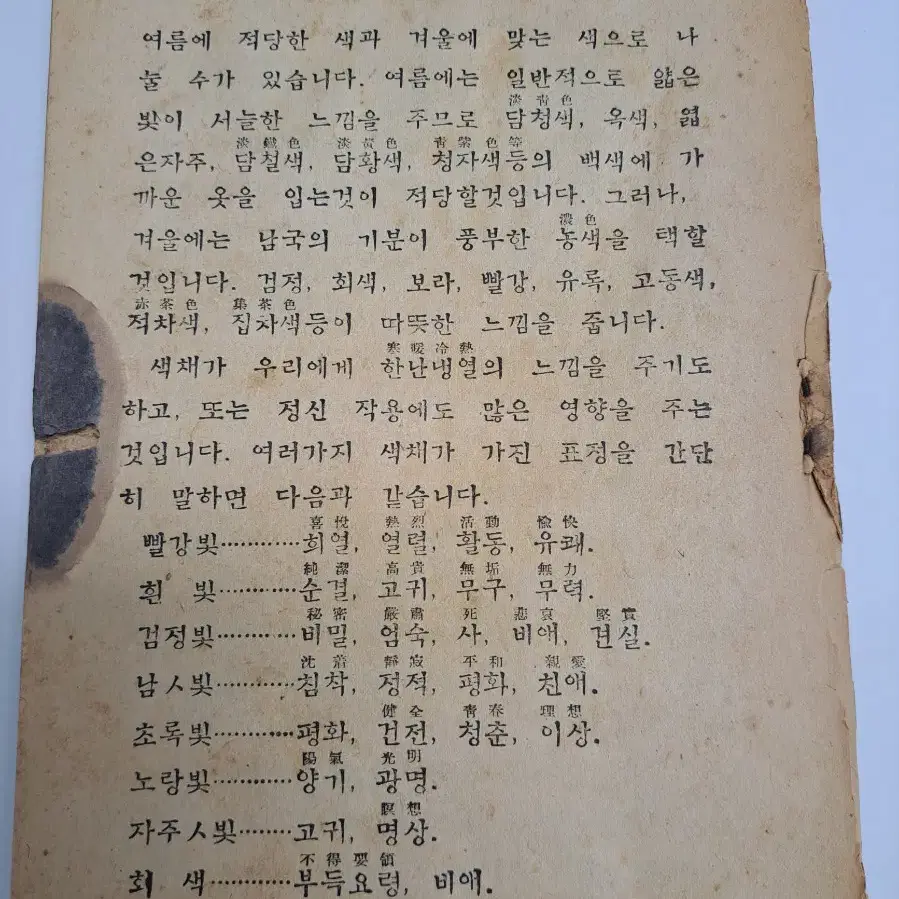 여름에 적당한 색과 겨울에 맞는 색으로 나
눌 수가 있습니다. 여름에는 일반적으로 얇은
淡靑色
빛이 서늘한 느낌을 주므로 담청색, 옥색, 엷
淡鐵色 淡黃色 靑紫色等
은자주, 담철색, 담황색, 청자색등의 백색에 가
까운 옷을 입는것이 적당할것입니다. 그러나,
濃色
겨울에는 남국의 기분이 풍부한 농색을 택할
것입니다. 검정, 회색, 보라, 빨강, 유록, 고동색,
赤茶色 集茶色
적차색, 집차색등이 따뜻한 느낌을 줍니다.
寒暖冷熱
색채가 우리에게 한난냉열의 느낌을 주기도
하고, 또는 정신 작용에도 많은 영향을 주는
것입니다. 여러가지 색채가 가진 표정을 간단
히 말하면 다음과 같습니다.
喜悅 熱烈 活動 愉快
빨강빛…………희열, 열렬, 활동, 유쾌.
純潔 高貴 無垢 無力
흰 빛…………순결, 고귀, 무구, 무력.
秘密 嚴肅 死 悲哀 堅實
검정빛…………비밀, 엄숙, 사, 비애, 견실.
沈着 靜寂 平和 親愛
남ㅅ빛…………침착, 정적, 평화, 친애.
健全 靑春 理想
초록빛…………평화, 건전, 청춘, 이상.
陽氣 光明
노랑빛…………양기, 광명.
瞑想
자주ㅅ빛………고귀, 명상.
不得要領
회 색…………부득요령, 비애.